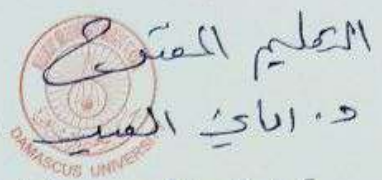 التعليم المفتوح
د. اماني
DAMASCUS UNIVERSITY